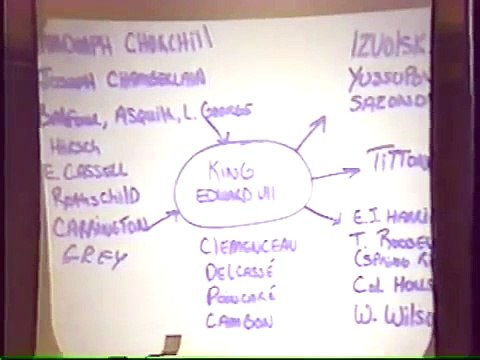 RANDOLPH CHURCHILL
JOSEPH CHAMBERLAIN
BALFOUR, ASQUITH, L. GEORGE
HIRSCH
E. CASSELL
ROTHSCHILD
CARRINGTON
GREY
KING
EDWARD VII
CLEMENCEAU
DELCASSÉ
POINCARÉ
CAMBON
IZVOLSK
YUSSUPOV
SAZONO
TITTON
E.I. HARRI
T. ROOSEV
(SPRING RI
Col. HOUS
W. WILSO